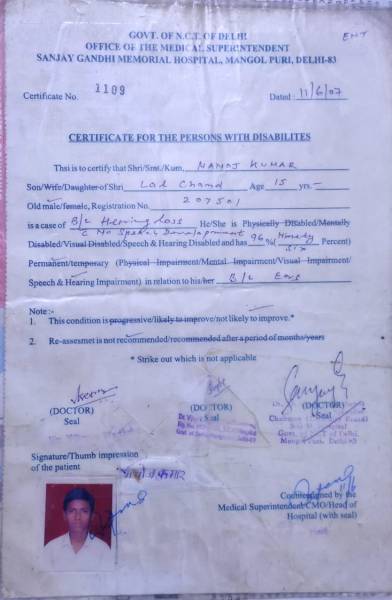 ENT
GOVT. OF N.C.T. OF DELHI
OFFICE OF THE MEDICAL SUPERINTENDENT
SANJAY GANDHI MEMORIAL HOSPITAL, MANGOL PURI, DELHI-83
Certificate No. 1109 Dated : 11/6/07
CERTIFICATE FOR THE PERSONS WITH DISABILITES
Thsi is to certify that Shri/Smt./Kum. MANOJ KUMAR
Son/Wife/Daughter of Shri Lal Chand Age 15 yrs.
Old male/female, Registration No. 207501
is a case of B/L Hearing loss He/She is Physically Disabled/Mentally
C No Speech Development 96% (Ninety Six
Disabled/Visual Disabled/Speech & Hearing Disabled and has Percent)
Permanent/temporary (Physical Impairment/Mental Impairment/Visual Impairment/
Speech & Hearing Impairment) in relation to his/her B/L Ears
Note :-
1. This condition is progressive/likely to improve/not likely to improve.*
2. Re-assesmet is not recommended/recommended after a period of months/years
* Strike out which is not applicable
(DOCTOR) (DOCTOR) (DOCTOR)
Seal Seal Seal
Signature/Thumb impression
of the patient
Countersigned by the
Medical Superintendent/CMO/Head of
Hospital (with seal)